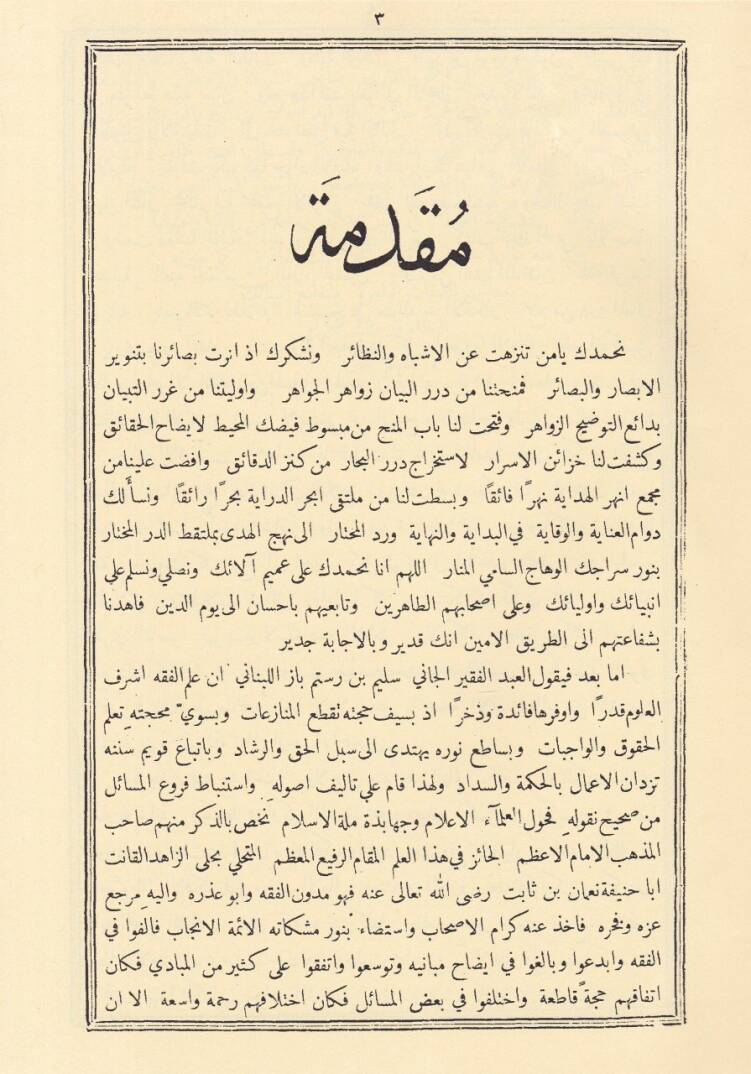 ٣
مُقَدمَة
نحمدك يامن تنزهت عن الاشباه والنظائر ونشكرك اذ انرت بصائرنا بتنوير
الابصار والبصائر فمنحتنا من درر البيان زواهر الجواهر واوليتنا من غرر التبيان
بدائع التوضيح الزواهر وفتحت لنا باب المنح من مبسوط فيضك المحيط لايضاح الحقائق
وكشفت لنا خزائن الاسرار لاستخراج درر البحار من كنز الدقائق وافضت علينا من
مجمع انهر الهداية نهرًا فائقًا وبسطت لنا من ملتقى ابحر الدراية بحرًا رائقًا ونسأَلك
دوام العناية والوقاية في البداية والنهاية ورد المحتار الى نهج الهدى بملتقط الدر المختار
بنور سراجك الوهاج السامي المنار اللهم انا نحمدك على عميم آلائك ونصلي ونسلم على
انبيائك واوليائك وعلى اصحابهم الطاهرين وتابعيهم باحسان الى يوم الدين فاهدنا
بشفاعتهم الى الطريق الامين انك قدير وبالاجابة جدير
اما بعد فيقول العبد الفقير الجاني سليم بن رستم باز اللبناني ان علم الفقه اشرف
العلوم قدرًا واوفرها فائدة وذخرًا اذ بسيف حجته تقطع المنازعات وبسويّ محجته تعلم
الحقوق والواجبات وبساطع نوره يهتدى الى سبل الحق والرشاد وباتباع قويم سننه
تزدان الاعمال بالحكمة والسداد ولهذا قام على تاليف اصوله واستنباط فروع المسائل
من صحيح نقوله فحول العلمآء الاعلام وجهابذة ملة الاسلام نخص بالذكر منهم صاحب
المذهب الامام الاعظم الحائز في هذا العلم المقام الرفيع المعظم المتحلي بحلى الزاهد القانت
ابا حنيفة نعمان بن ثابت رضي الله تعالى عنه فهو مدون الفقه وابو عذره واليه مرجع
عزه وفخره فاخذ عنه كرام الاصحاب واستضاء بنور مشكاته الائمة الانجاب فالفوا في
الفقه وابدعوا وبالغوا في ايضاح مبانيه وتوسعوا واتفقوا على كثير من المبادي فكان
اتفاقهم حجةً قاطعة واختلفوا في بعض المسائل فكان اختلافهم رحمة واسعة الا ان